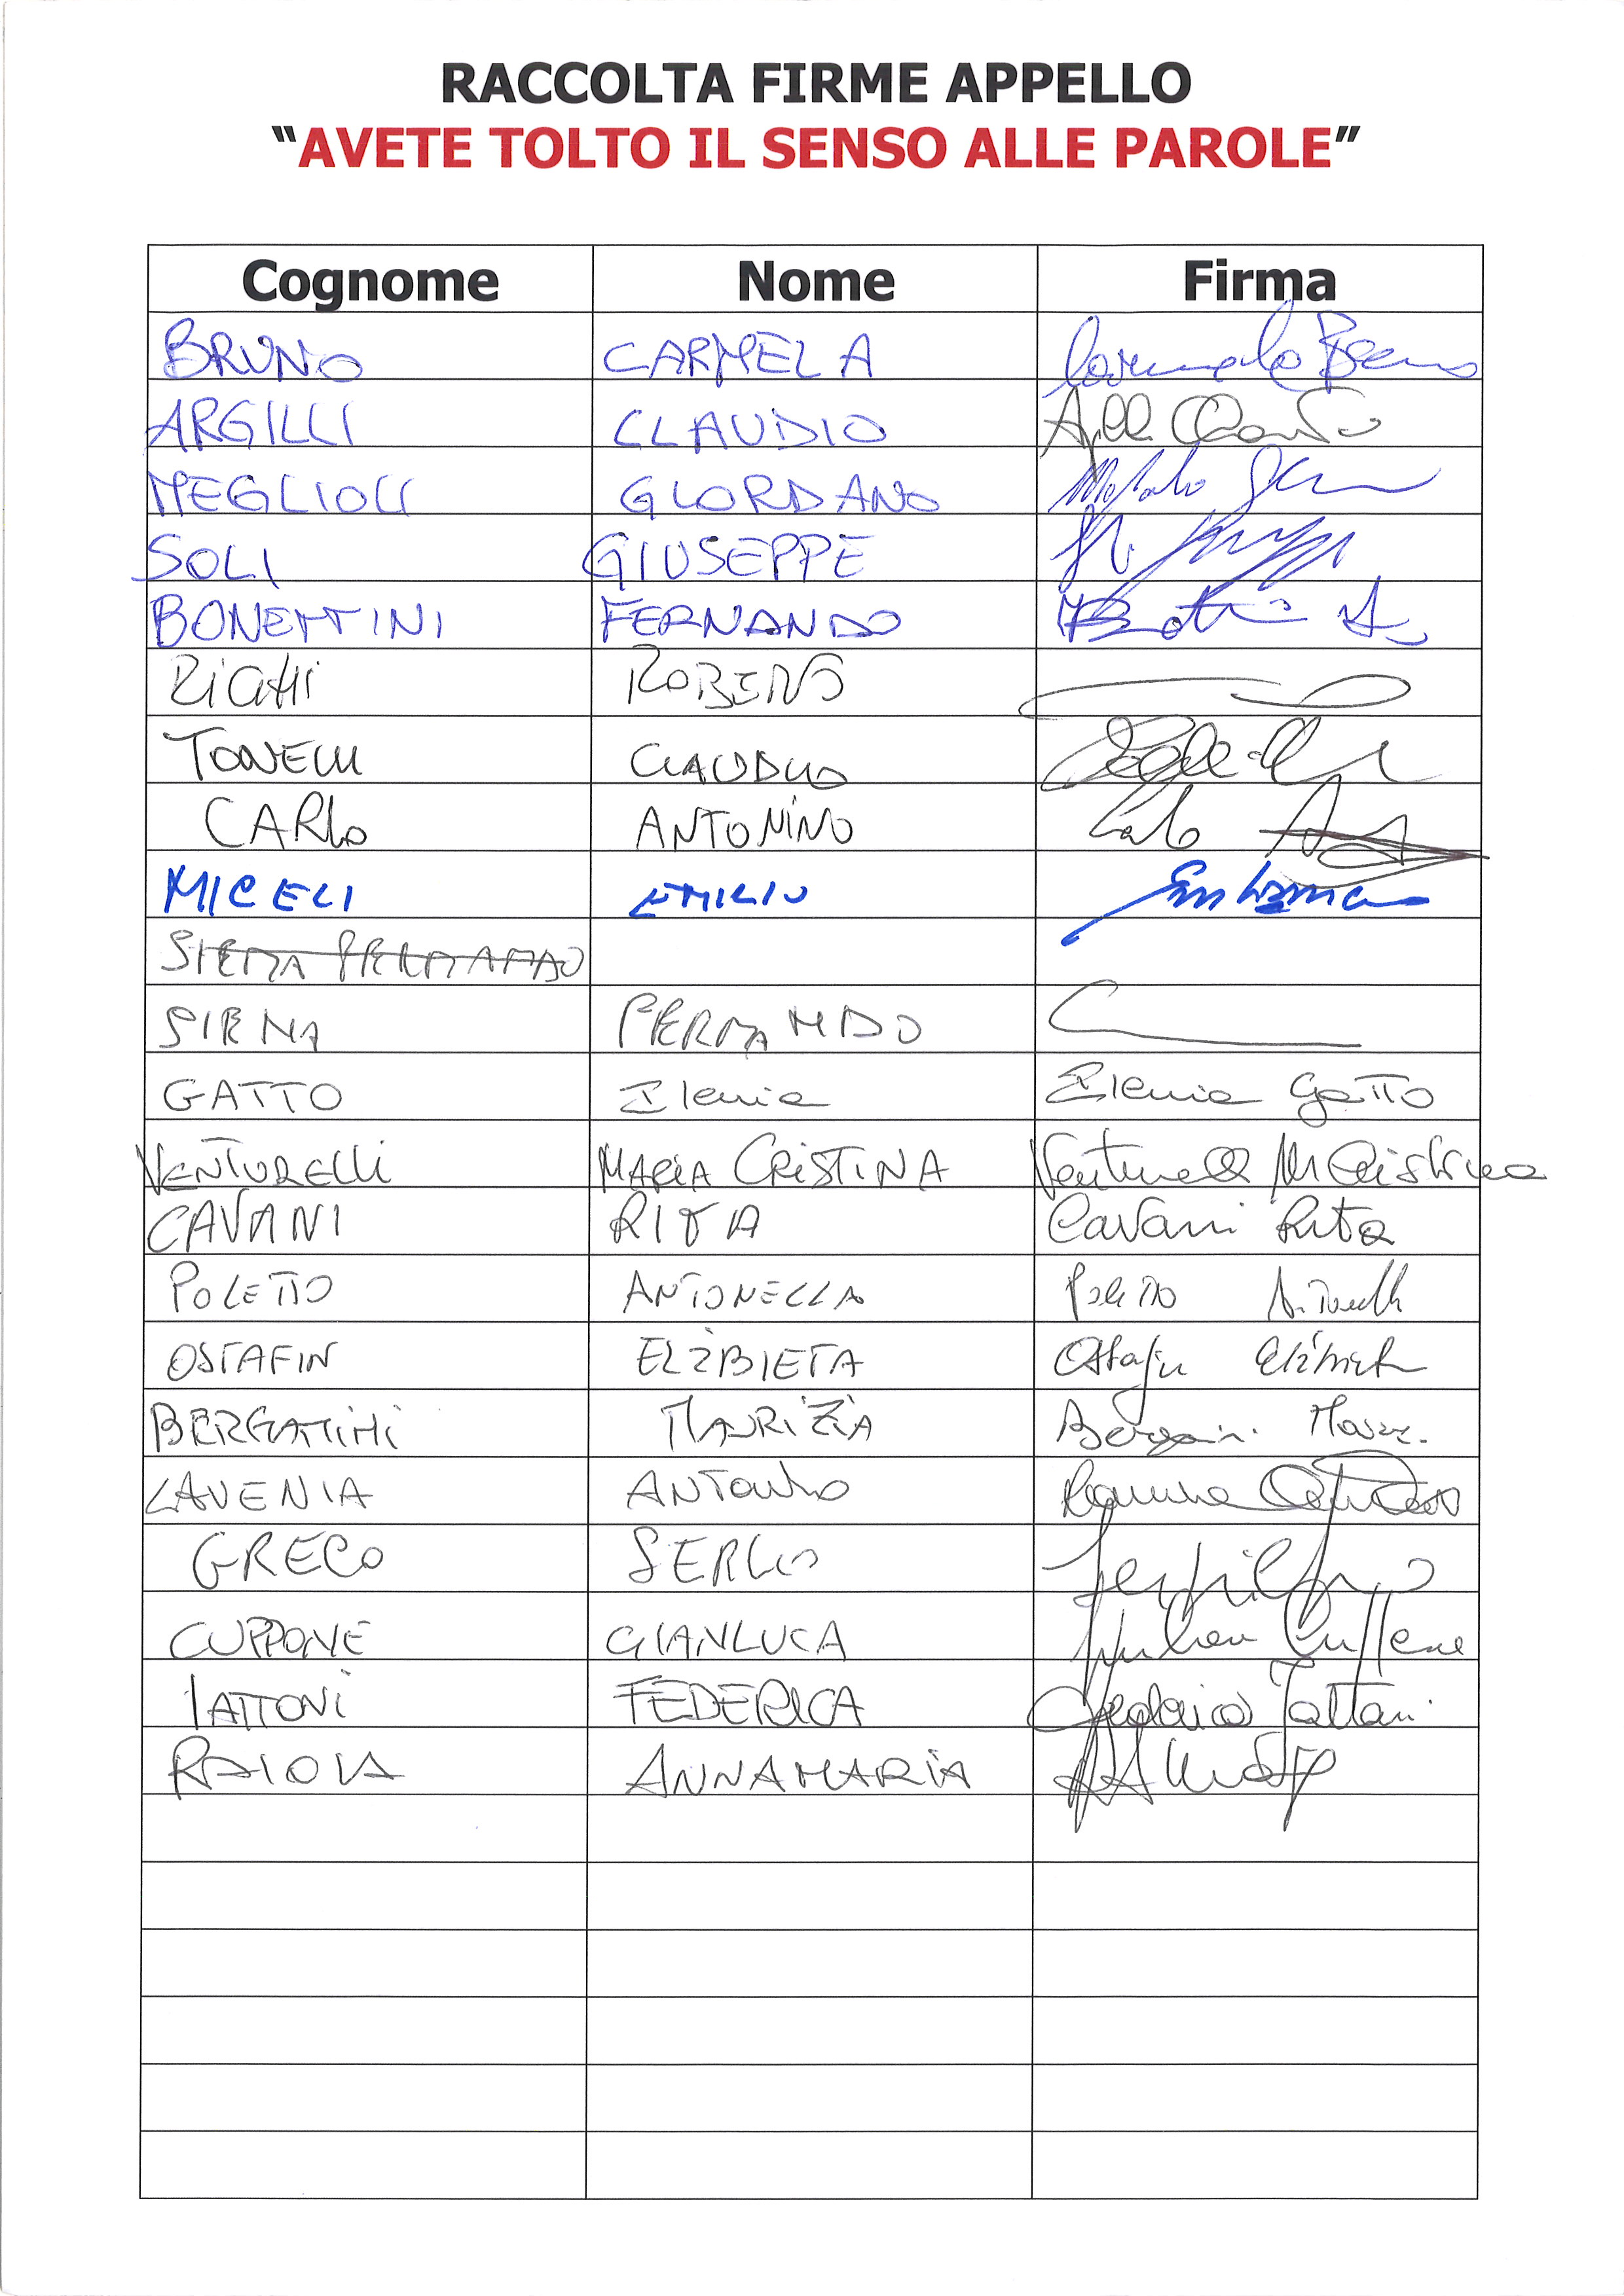 RACCOLTA FIRME APPELLO
“AVETE TOLTO IL SENSO ALLE PAROLE”
Cognome Nome Firma
BRUNO CARMELA Carmela Bruno
ARGILLI CLAUDIO
MEGLIOLI GIORDANO
SOLI GIUSEPPE
BONETTINI FERNANDO
RIGHI ROBENS
TONELLI CLAUDIO
CARLO ANTONINO Carlo
MICELI EMILIO
SIRNA FERNANDO
GATTO Ilenia Ilenia Gatto
VENTURELLI MARIA CRISTINA Venturelli M Cristina
CAVANI RITA Cavani Rita
POLETTO ANTONELLA Poletto Antonella
OSTAFIN ELŻBIETA Ostafin Elżbieta
BERGAMINI MAURIZIA
LAVENIA ANTONINO
GRECO SERGIO
CUPPONE GIANLUCA Gianluca Cuppone
IATTONI FEDERICA Federica Iattoni
RAIOLA ANNAMARIA